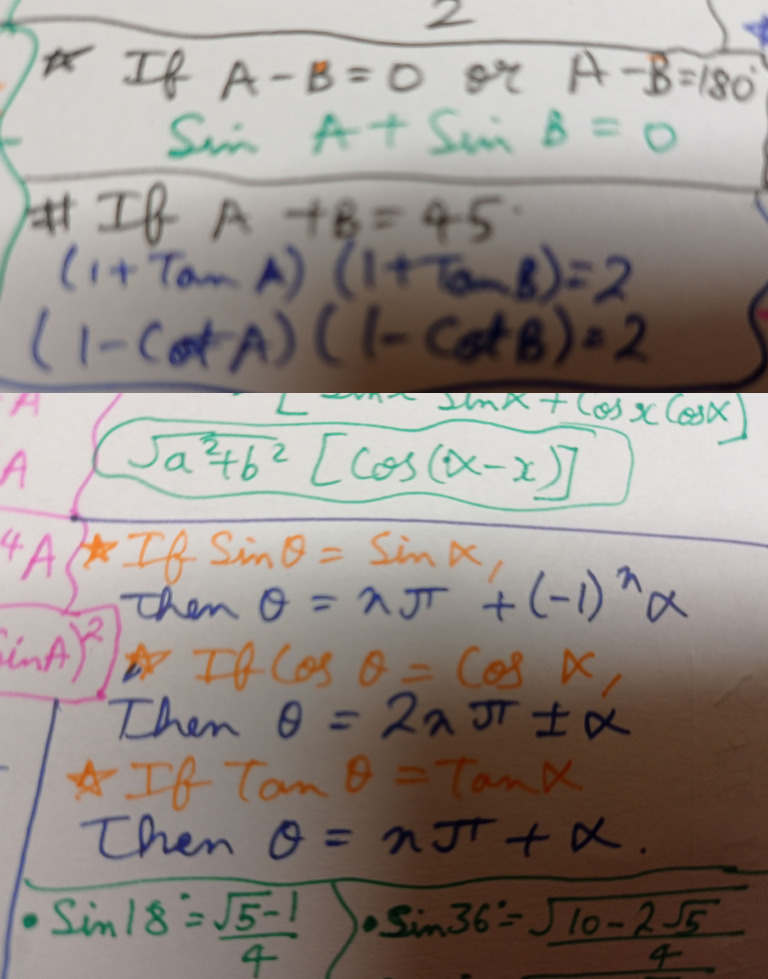 2
☆ If A - B = 0 or A - B = 180°
Sin A + Sin B = 0
# If A + B = 45°
(1 + Tan A) (1 + Tan B) = 2
(1 - Cot A) (1 - Cot B) = 2
A sinα + Cos x Cosα]
A √a²+b² [Cos(α-x)]
⁴A ☆ If Sin θ = Sin α,
Then θ = nπ + (-1)ⁿ α
SinA)² ☆ If Cos θ = Cos α,
Then θ = 2nπ ± α
☆ If Tan θ = Tan α
Then θ = nπ + α.
• Sin 18° = √5-1/4 • Sin 36° = √10-2√5/4